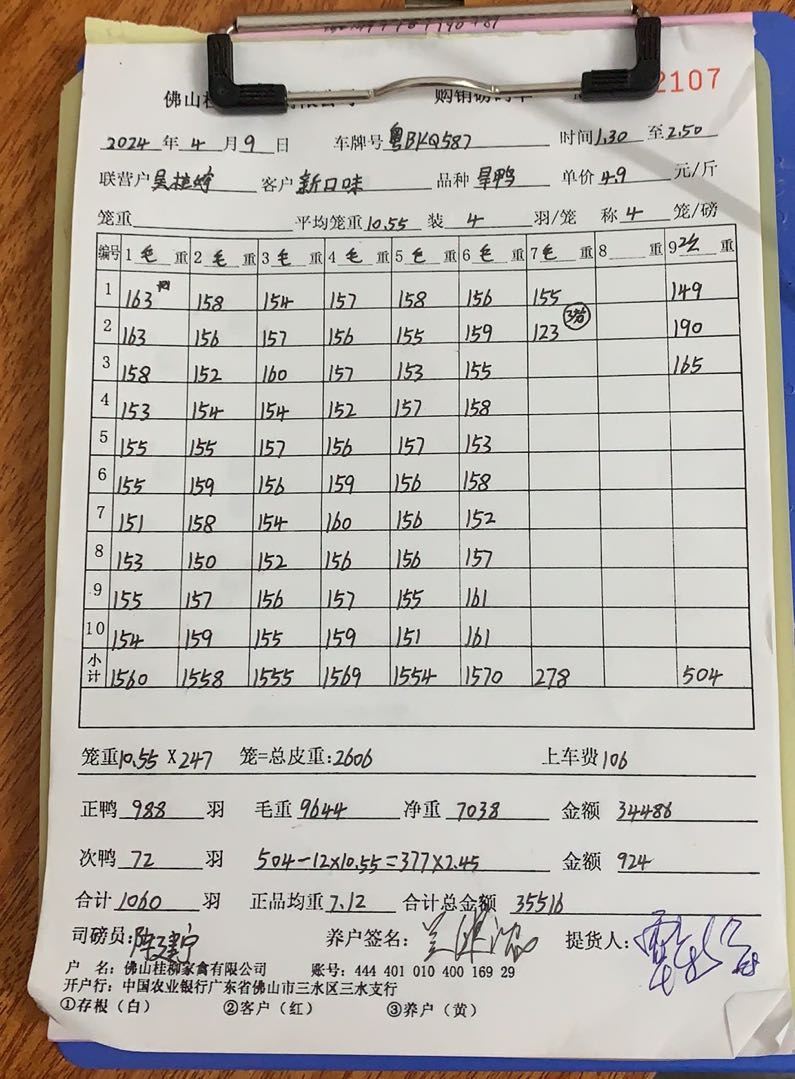 佛山桂 购销磅码单 2107
2024年4月9日 车牌号 粤BKQ587 时间1.30至2.50
联营户 客户 新口味 品种 旱鸭 单价4.9元/斤
笼重 平均笼重10.55装4羽/笼 称4笼/磅
编号 1毛重 2毛重 3毛重 4毛重 5毛重 6毛重 7毛重 8重 9次重
1 163 158 154 157 158 156 155 149
2 163 156 157 156 155 159 123 190
3 158 152 160 157 153 155 165
4 153 154 154 152 157 158
5 155 155 157 156 157 153
6 155 159 156 159 156 158
7 151 158 154 160 156 152
8 153 150 152 156 156 157
9 155 157 156 157 155 161
10 154 159 155 159 151 161
小计 1560 1558 1555 1569 1554 1570 278 504
笼重10.55X247笼=总皮重:2606 上车费106
正鸭988羽 毛重9644 净重7038 金额34486
次鸭72羽 504-12X10.55=377X2.45 金额924
合计1060羽 正品均重7.12 合计总金额35516
司磅员:陈建宁 养户签名: 提货人:
户 名:佛山桂柳家禽有限公司 账号:444 401 010 400 169 29
开户行:中国农业银行广东省佛山市三水区三水支行
①存根(白) ②客户(红) ③养户(黄)